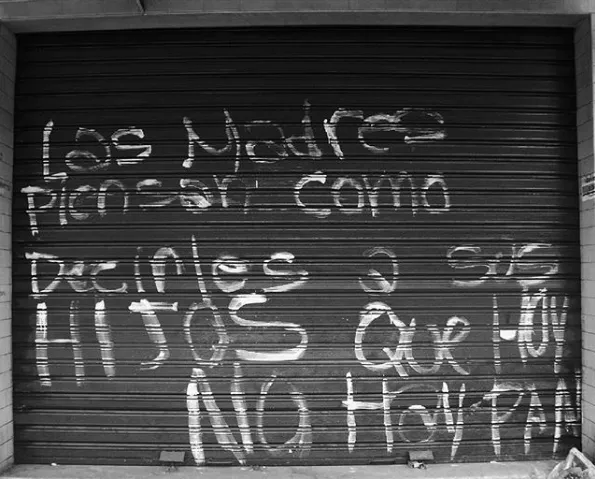 Las Madres
piensan como
Decirles a sus
HIJOS QUE HOY
NO HaY PAN